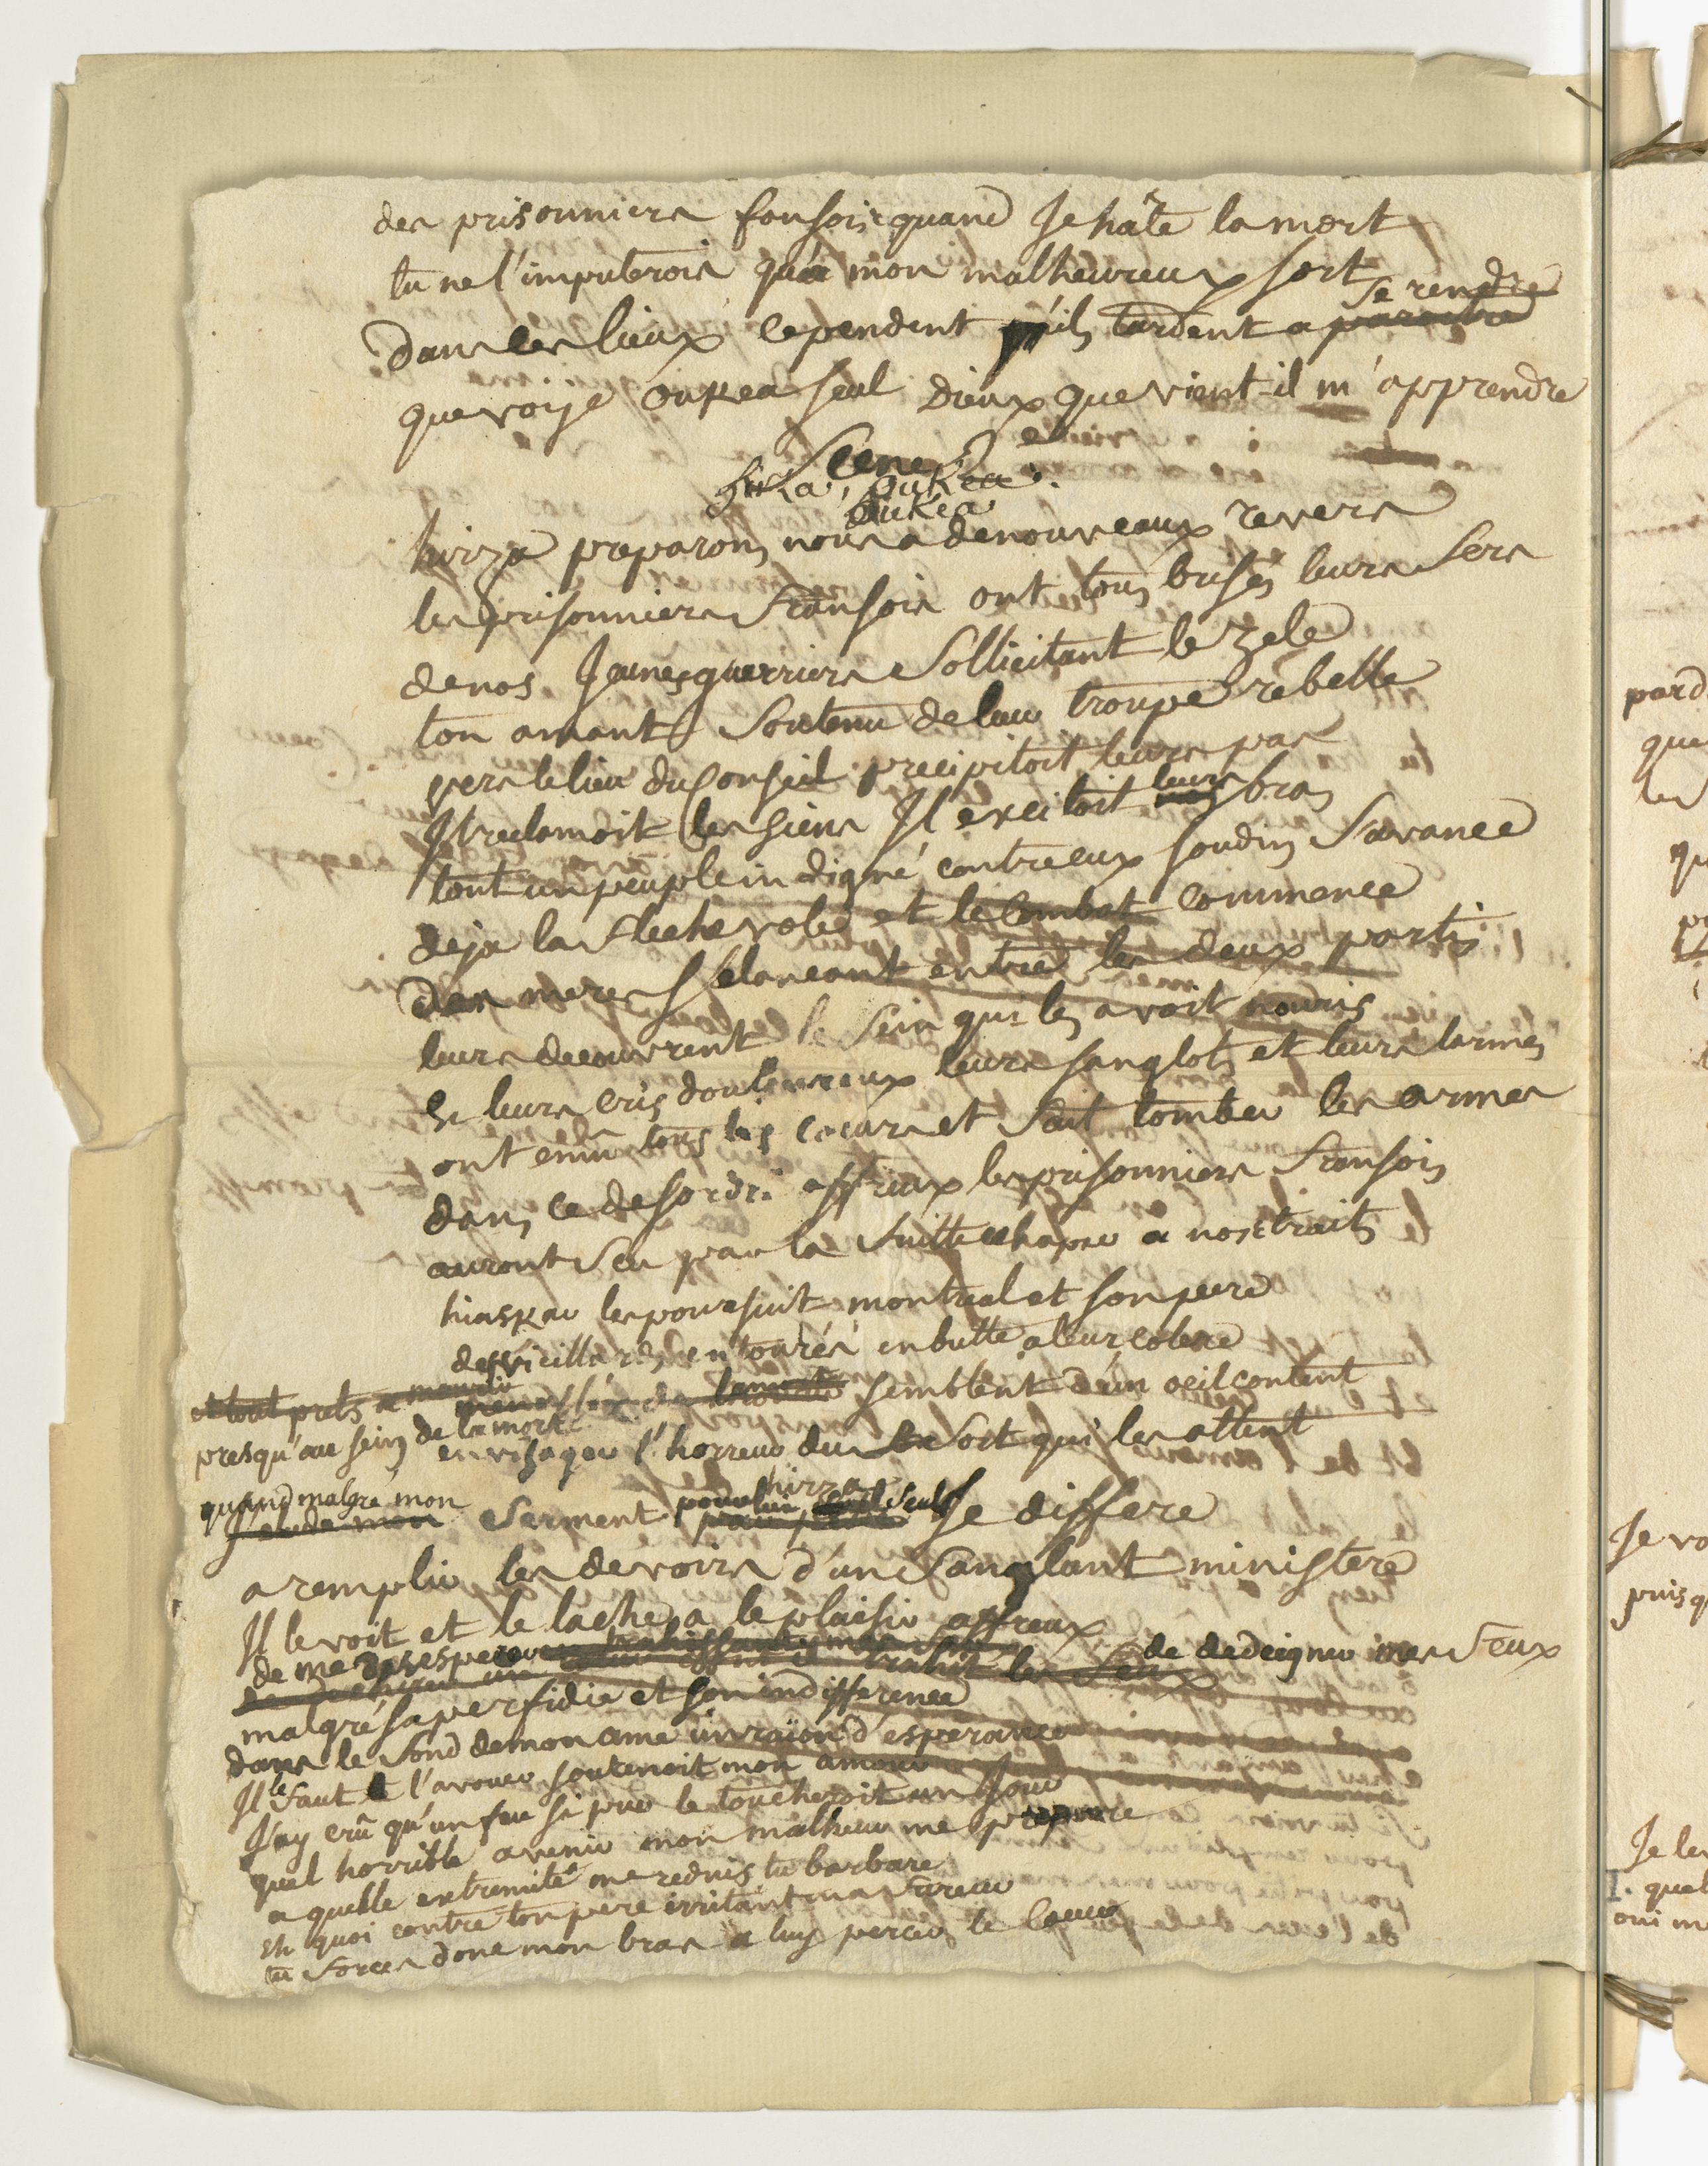 des prisonniers fransois quand Je hâte la mort
tu ne l'imputerois qu'a mon malheureux sort
se rendre
dans ces lieux cependent qu'ils tardent a paroitre
que voije oukea seul Dieux que vient-il m'apprendre
Scene 2e
hirza, oukea.
oukea
hirza preparons nous a de nouveaux revers
les prisonniers fransois ont tous brisés leurs fers
de nos Jeunes guerriers sollicitant le zele
ton amant soutenu de leur troupe rebelle
vers le lieu du Conseil precipitoit leurs pas
Il reclamoit les siens Il excitoit leurs bras
tout un peuple indigné contre eux soudin s'avance
deja la fleche vole et le Combat commence
des meres s'elancant entre les deux partis
leurs decouvrent le sein qui les avoit nouris
et leurs cris douloureux leurs sanglots et leurs larmes
ont emu tous les coeurs et fait tomber les armes
dans ce desordre affreux les prisonniers fransois
auront sçu par la fuitte echaper a nos traits
hiaskar les poursuit montreal et son pere
des vieillards entourés en butte a leur colere
et tout prets a mourir semblent d'un oeil content
presqu'au sein de la mort
envisager l'horreur du sort qui les attent
quand malgré mon hirza
J'elude mon serment pour lui seul Je differe
a remplir les devoirs d'un sanglant ministere
Il le voit et le lache a le plaisir affreux
de me desesperer de dedeigner mes feux
malgré sa perfidie et son indifference
dans le fond de mon ame un raïon d'esperance
Il le faut l'avouer soutenoit mon amour
J'ay crû qu'un feu si pur le toucheroit un Jour
quel horrible avenir mon malheur me prepare
a quelle extremité me reduis tu barbare
Eh quoi contre ton pere irritant ma fureur
tu forces donc mon bras a luy percer le Coeur
pard
que
les
qu
Je vo
puisq
Je le
quel
oui m